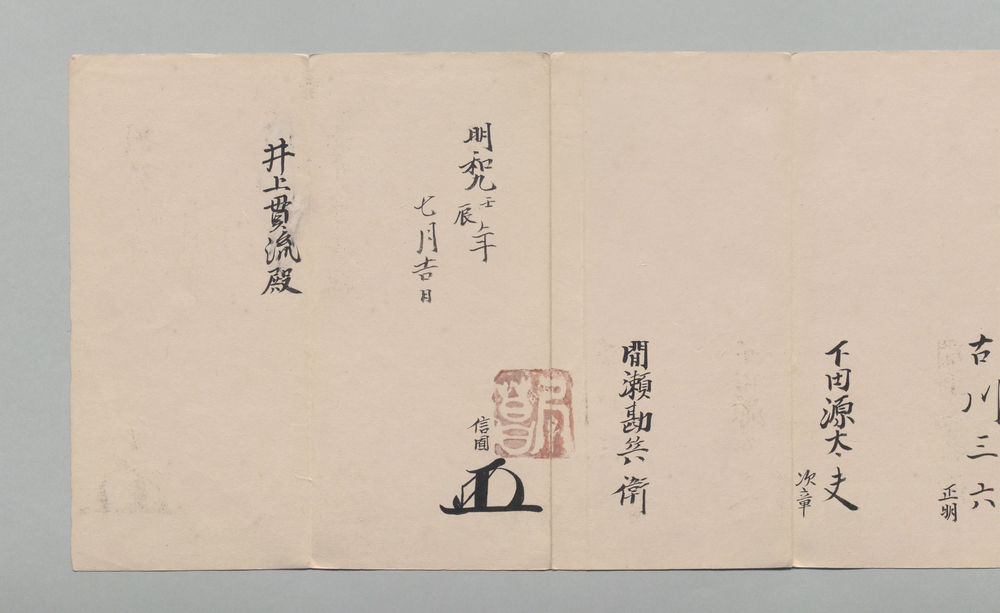 古川三六
正明
下田源太夫
次章
間瀬勘兵衛
信圓
明和九壬辰年
七月吉日
井上貫流殿